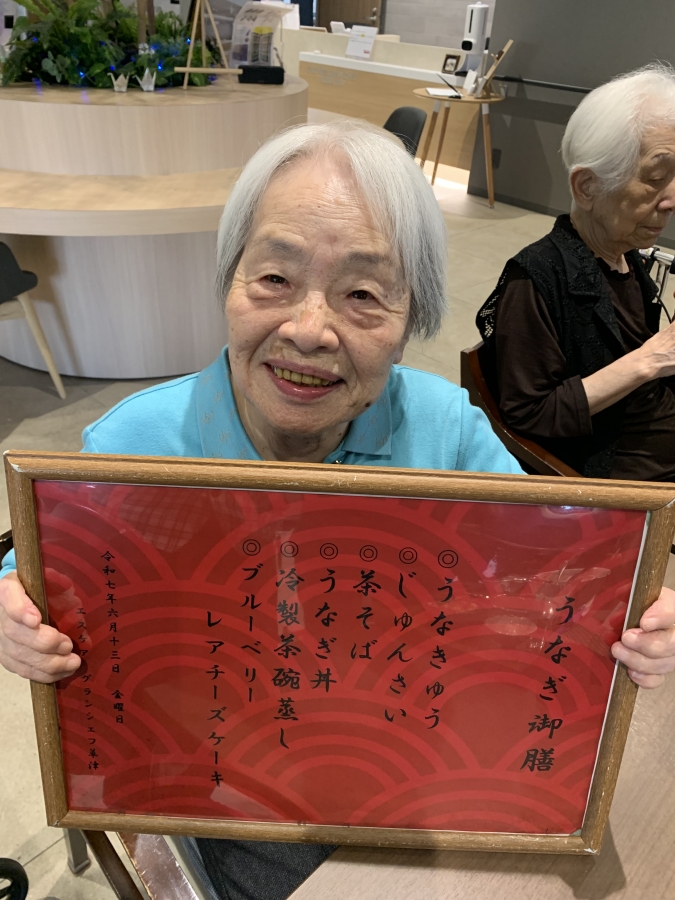 うなぎ御膳
◎うなきゅう
◎じゅんさい
◎茶そば
◎うなぎ丼
◎冷製茶碗蒸し
◎ブルーベリー
レアチーズケーキ
令和七年六月十三日 金曜日